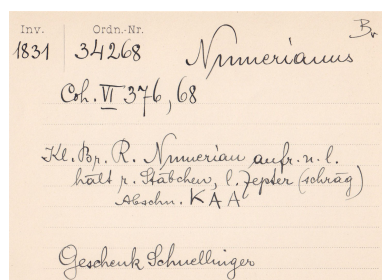 Inv. Ordn.-Nr. Br
1831 34268 Numerianus
Coh. VI 376, 68
Kl. Br. R. Numerian aufr. n. l.
hält r. Stäbchen, l. Zepter (schräg)
Abschn. KAA
Geschenk Schnellinger